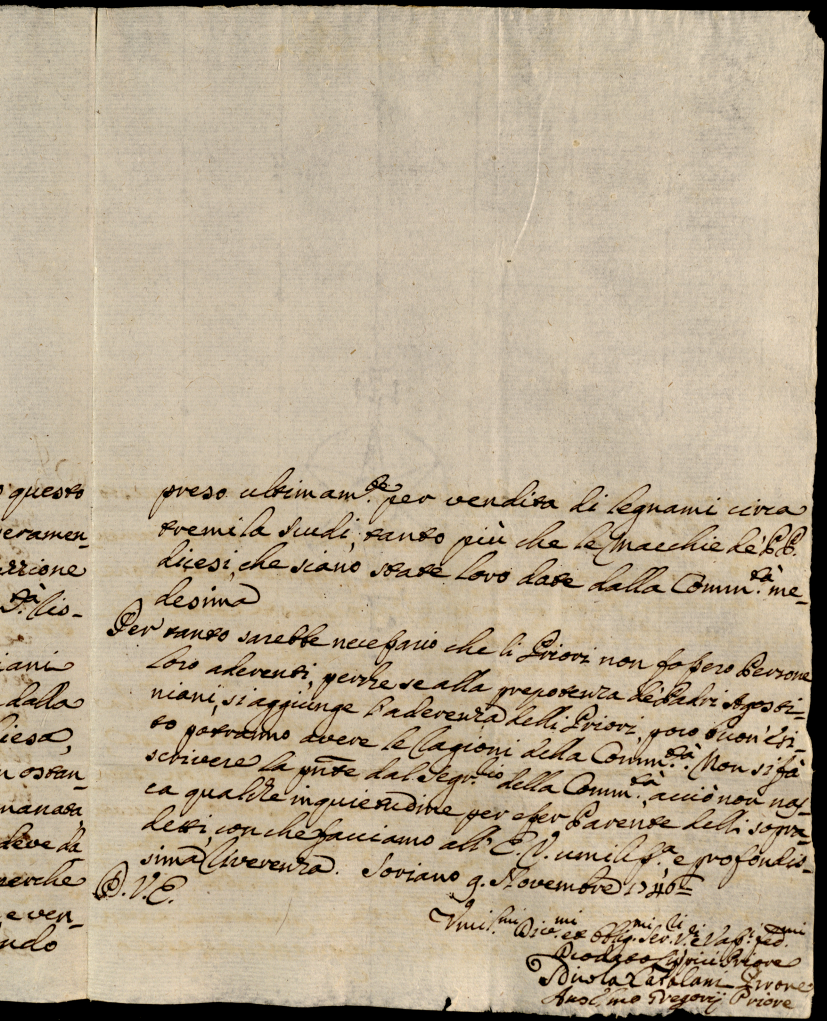 questo
eramen-
izzione
Tà. Cio-
iani
dalla
iesa,
n ostan-
manata,
deve da
perche
e ven-
ndo
preso ultimam.te per vendita di legnami circa
tremila scudi, tanto più che le Macchie de' P.P.
dicesi, che siano state loro date dalla Comm.tà me-
desima
Per tanto sarebbe necessario che li Priori non fossero Persone
loro aderenti, perche se alla prepotenza de Padri Agosti-
niani, si aggiunge l'aderenza delli Priori, poco buon'esi-
to potranno avere le ragioni della Comm.tà. Non si fà
scrivere la pñte dal Segr.rio della Comm.tà, acciò non nas-
ca qualche inquietudine per esser Parente delli sopra-
detti, con che facciamo all' E. V. umiliss.a e profondis-
sima riverenza. Soriano 9. Novembre 1746
D. V. E.
Umil.mi Dev.mi et Obblig.mi Ser.ri e Vass. fed.mi
Priore
Nicola Catalani Priore
Anselmo Gregorij Priore